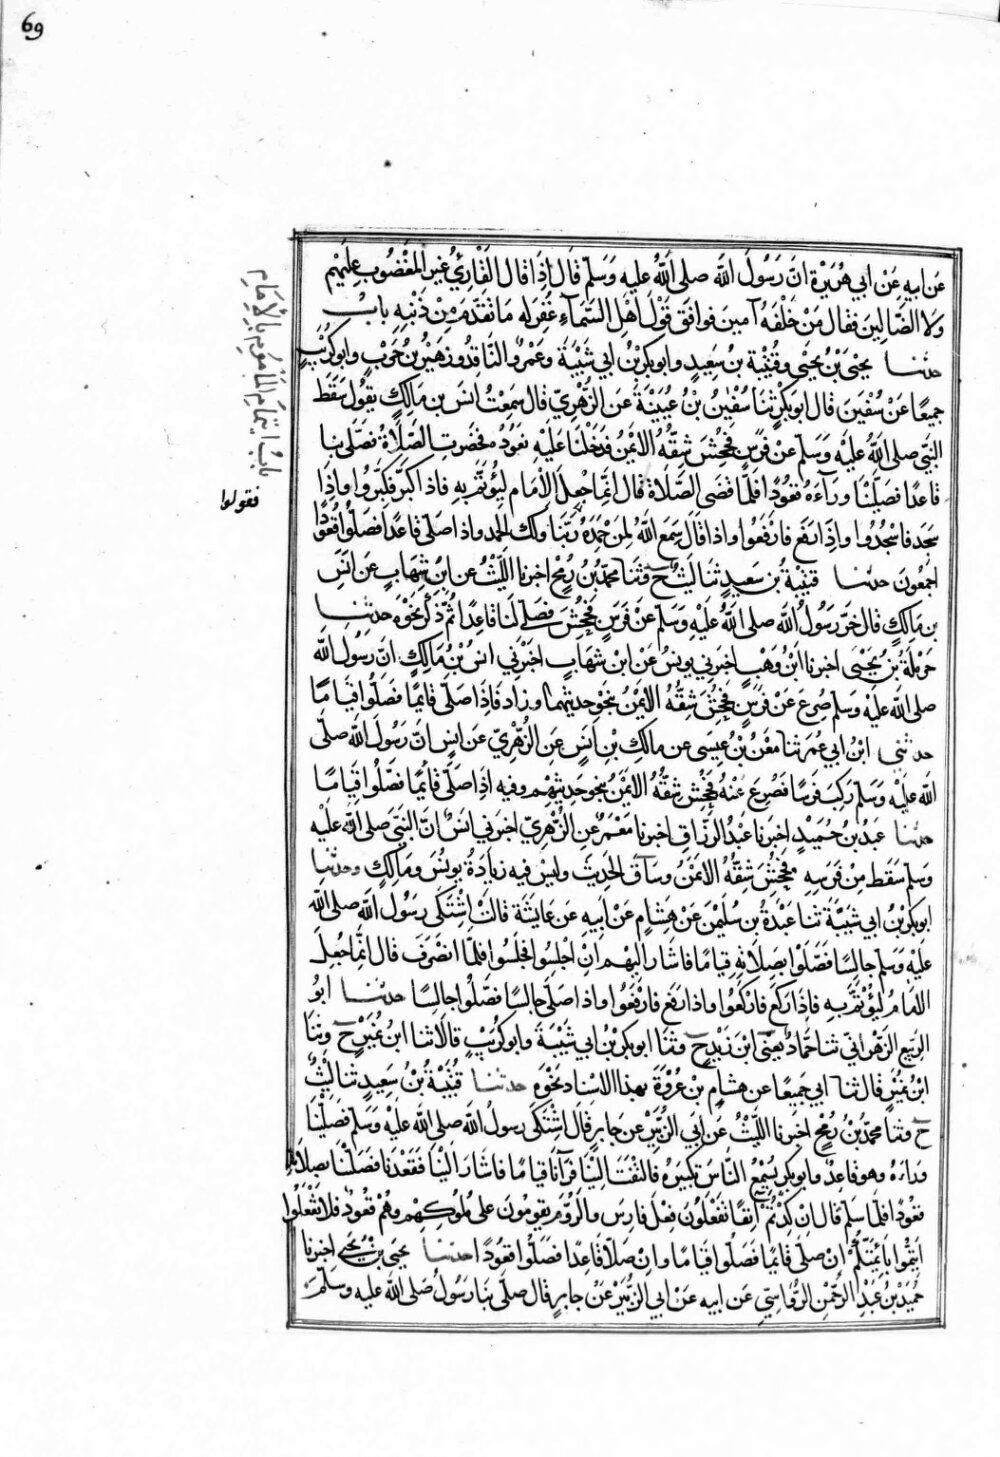 69
عَن ابيهِ عَن ابي هُرَيْرَة انَّ رَسُولَ الله صلى اللهُ عليه وَسَلّم قَال اِذَا قال القَارِئُ غيرِ المغَضُوبِ عليَهْم
وَلَا الضَّالينَ فقال مَنْ خَلْفَهُ آمين فوافق قَوْلَ اَهْل السَّمآءِ غُفِرَ له مَا تقدَّمَ مِنْ ذَنْبِهِ بابُ
حدثنا يحيَى بْن يحيَى وقُتَيْبَة بن سَعِيدٍ وابو بكرِ بْنُ ابي شَيْبَةَ وَعَمْرٌو النَّاقِدُ وزهَيْرُ بْنُ حَرْبٍ وابو كُرَيْبٍ
جميعًا عَنْ سُفْيَنَ قال ابو بَكْرٍ ثنَا سُفْيَنُ بْنُ عُيَيْنَةَ عَن الزُهْرِيّ قال سَمِعْتُ انسَ بن مَالِكٍ يَقُول سَقَطَ
النَّبيّ صلى اللهُ عليَه وَسَلّم عَنْ فَرَسٍ فَجُحِشَ شِقُّهُ الايْمَنُ فدَخَلْنَا عَلَيْهِ نعَوُدُهُ فحضَرت الصَّلَاةُ فصَلّى بنا
قاعدًا فصَلّيْنَا ورَآءَهُ قعُودًا فلمَّا قضَى الصَّلَاة قال انّما جُعِلَ الاِمَام ليُؤتَمَّ بهِ فاذا كبَّرَ فكَبِّروُا واذَا
سَجَد فاسْجُدُوا واِذَا رَفَعَ فارْفَعُوا واذا قَال سَمِعَ اللهُ لمِنْ حَمِدَهُ رَبّنا ولك الحمد واذا صلى قاعدًا فصَلُّوا قعُودًا
اجمعُونَ حدثنا قتيْبَةُ بن سَعيدٍ ثنا ليثٌ ح وثنا محمّدُ بْنُ رُمْحٍ اخبرنا اللّيْثُ عن ابْن شِهَابٍ عَن انَسِ
بن مَالِكٍ قال خرّ رَسُولُ الله صلى اللهُ عَليْهِ وَسَلّم عَنْ فَرَسٍ فَجُحِشَ فصَلّى لَنا قاعِدًا ثُمَّ ذكَرَ نَحْوَهُ حدثنا
حَرْمَلَةُ بْنُ يَحْيَى اخبرنا ابْنُ وَهْبٍ اخبَرني يونسُ عَن ابْن شِهَابٍ اخبَرْني انسُ بْنُ مَالِكٍ انّ رَسُولَ الله
صلى الله عَليْهِ وَسَلّم صُرِعَ عَنْ فَرَسٍ فَجُحِشَ شِقُّهُ الايْمَنُ بنحْوِ حديثهما وزاد فَاِذَا صَلّى قائِمًا فصَلُّوا قيَامًا
حدثني ابْنُ ابي عُمَرَ ثنا مَعْنُ بْنُ عِيسَى عن مالِكِ بْن اَنَسٍ عَنِ الزُّهْرِيّ عَن انَسٍ انَّ رَسُولَ الله صلّى
الله عَليْهِ وَسَلّم رَكِبَ فَرَسًا فصُرِعَ عَنْهُ فَجُحِشَ شِقُّهُ الايْمَنُ بنحو حَديثِهْم وفيه اِذَا صَلّى قائِمًا فَصَلُّوا قِيَامًا
حدثنا عَبْدُ بْنُ حُمَيْدٍ اخبرنا عَبْدُ الرَزَّاقِ اخبرنا مَعْمَرٌ عَنِ الزُهْرِيّ اخبَرني انَسٌ انَّ النَبِيَّ صلى الله عَليْه
وَسَلّم سَقَط مِنْ فَرَسِهِ فجُحِشَ شِقُّهُ الايْمَنُ وسَاقَ الحَديثَ وليْسَ فيه زيَادَةُ يونُسَ وَمَالِكٍ وحدثنا
ابو بكرِ بْنُ ابي شَيْبَةَ ثنا عَبْدَةُ بن سُليْمَنَ عَنْ هِشَامٍ عَنْ اَبيهِ عَنْ عَايشَة قالتْ اِشْتَكَى رسُوْلُ الله صلى الله
عَليْه وسَلّم جالِسًا فصَلّوْا بصَلاَتِهِ قِيَامًا فاشَار اليْهم اَنِ اجْلِسُوا فجلَسُوا فلمّا انصَرَفَ قال انّما جُعِلَ
الامَامُ ليؤْتَمَّ بهِ فاِذَا رَكَعَ فاركَعُوا واذا رَفعَ فارْفَعُوا واذا صَلَّى جالِسًا فصَلُّوا جالِسًا حدثنا ابوُ
الربيع الزَهْرَانيّ ثنا حَمّادٌ يَعْنى ابنَ زَيْدٍ ح وثنا ابو بكرِ بْنُ ابي شَيْبَةَ وابو كُرَيْبٍ قالَا ثنا ابنُ نُمَيْرٍ ح وثنا
ابْنُ نُمَيْرٍ قال ثنا ابي جَميعًا عن هشَامِ بْنِ عُرْوَةَ بهذا الاسْنادِ نَحْوَهُ حدثنا قُتَيْبَةُ بْنُ سَعِيدٍ ثنا لَيْثٌ
ح وثنا محمّدُ بْنُ رُمْحٍ اخبرنا اللّيْثُ عَن اَبي الزُبَيْرِ عَن جَابرٍ قال اشْتَكَى رسوُل الله صلى الله عَليْه وَسَلّم فصَلّيْنَا
وَرَاءَهُ وهو قاعِدٌ وابو بكرٍ يُسْمِعُ النَّاسَ تَكبيرَهُ فالتفَتَ اِليْنَا فرَآنَا قيامًا فاشَارَ اليْنَا فَقَعَدْنا فصَلّيْنا بصَلاَتِهِ
قعُودًا فلمّا سَلّم قال ان كِدْتُمْ آنِفًا تفْعَلُونَ فِعْلَ فارسَ والرُّومِ يقوُمُونَ على مُلُوكِهمْ وهُمْ قعُودٌ فلا تَفْعَلُوا
ايتمُّوا بِائِمَّتِكُمْ اِنْ صَلّى قائمًا فصَلُّوا قيَامًا وان صَلّى قَاعِدًا فصَلُّوا قعُودًا حدثنا يحيَى بْن يحَيى اخبرنا
حُمَيْدُ بْنُ عَبْدِ الرَّحْمنِ الرُؤَاسِيّ عَن ابيه عَنْ ابي الزُبَيْر عَنْ جابرٍ قال صلّى بنَا رَسُولُ صَلى الله عليه وسلّم
بابُ ايتِمَام المَأمُوم بِالْاِمَامِ
فقولوا